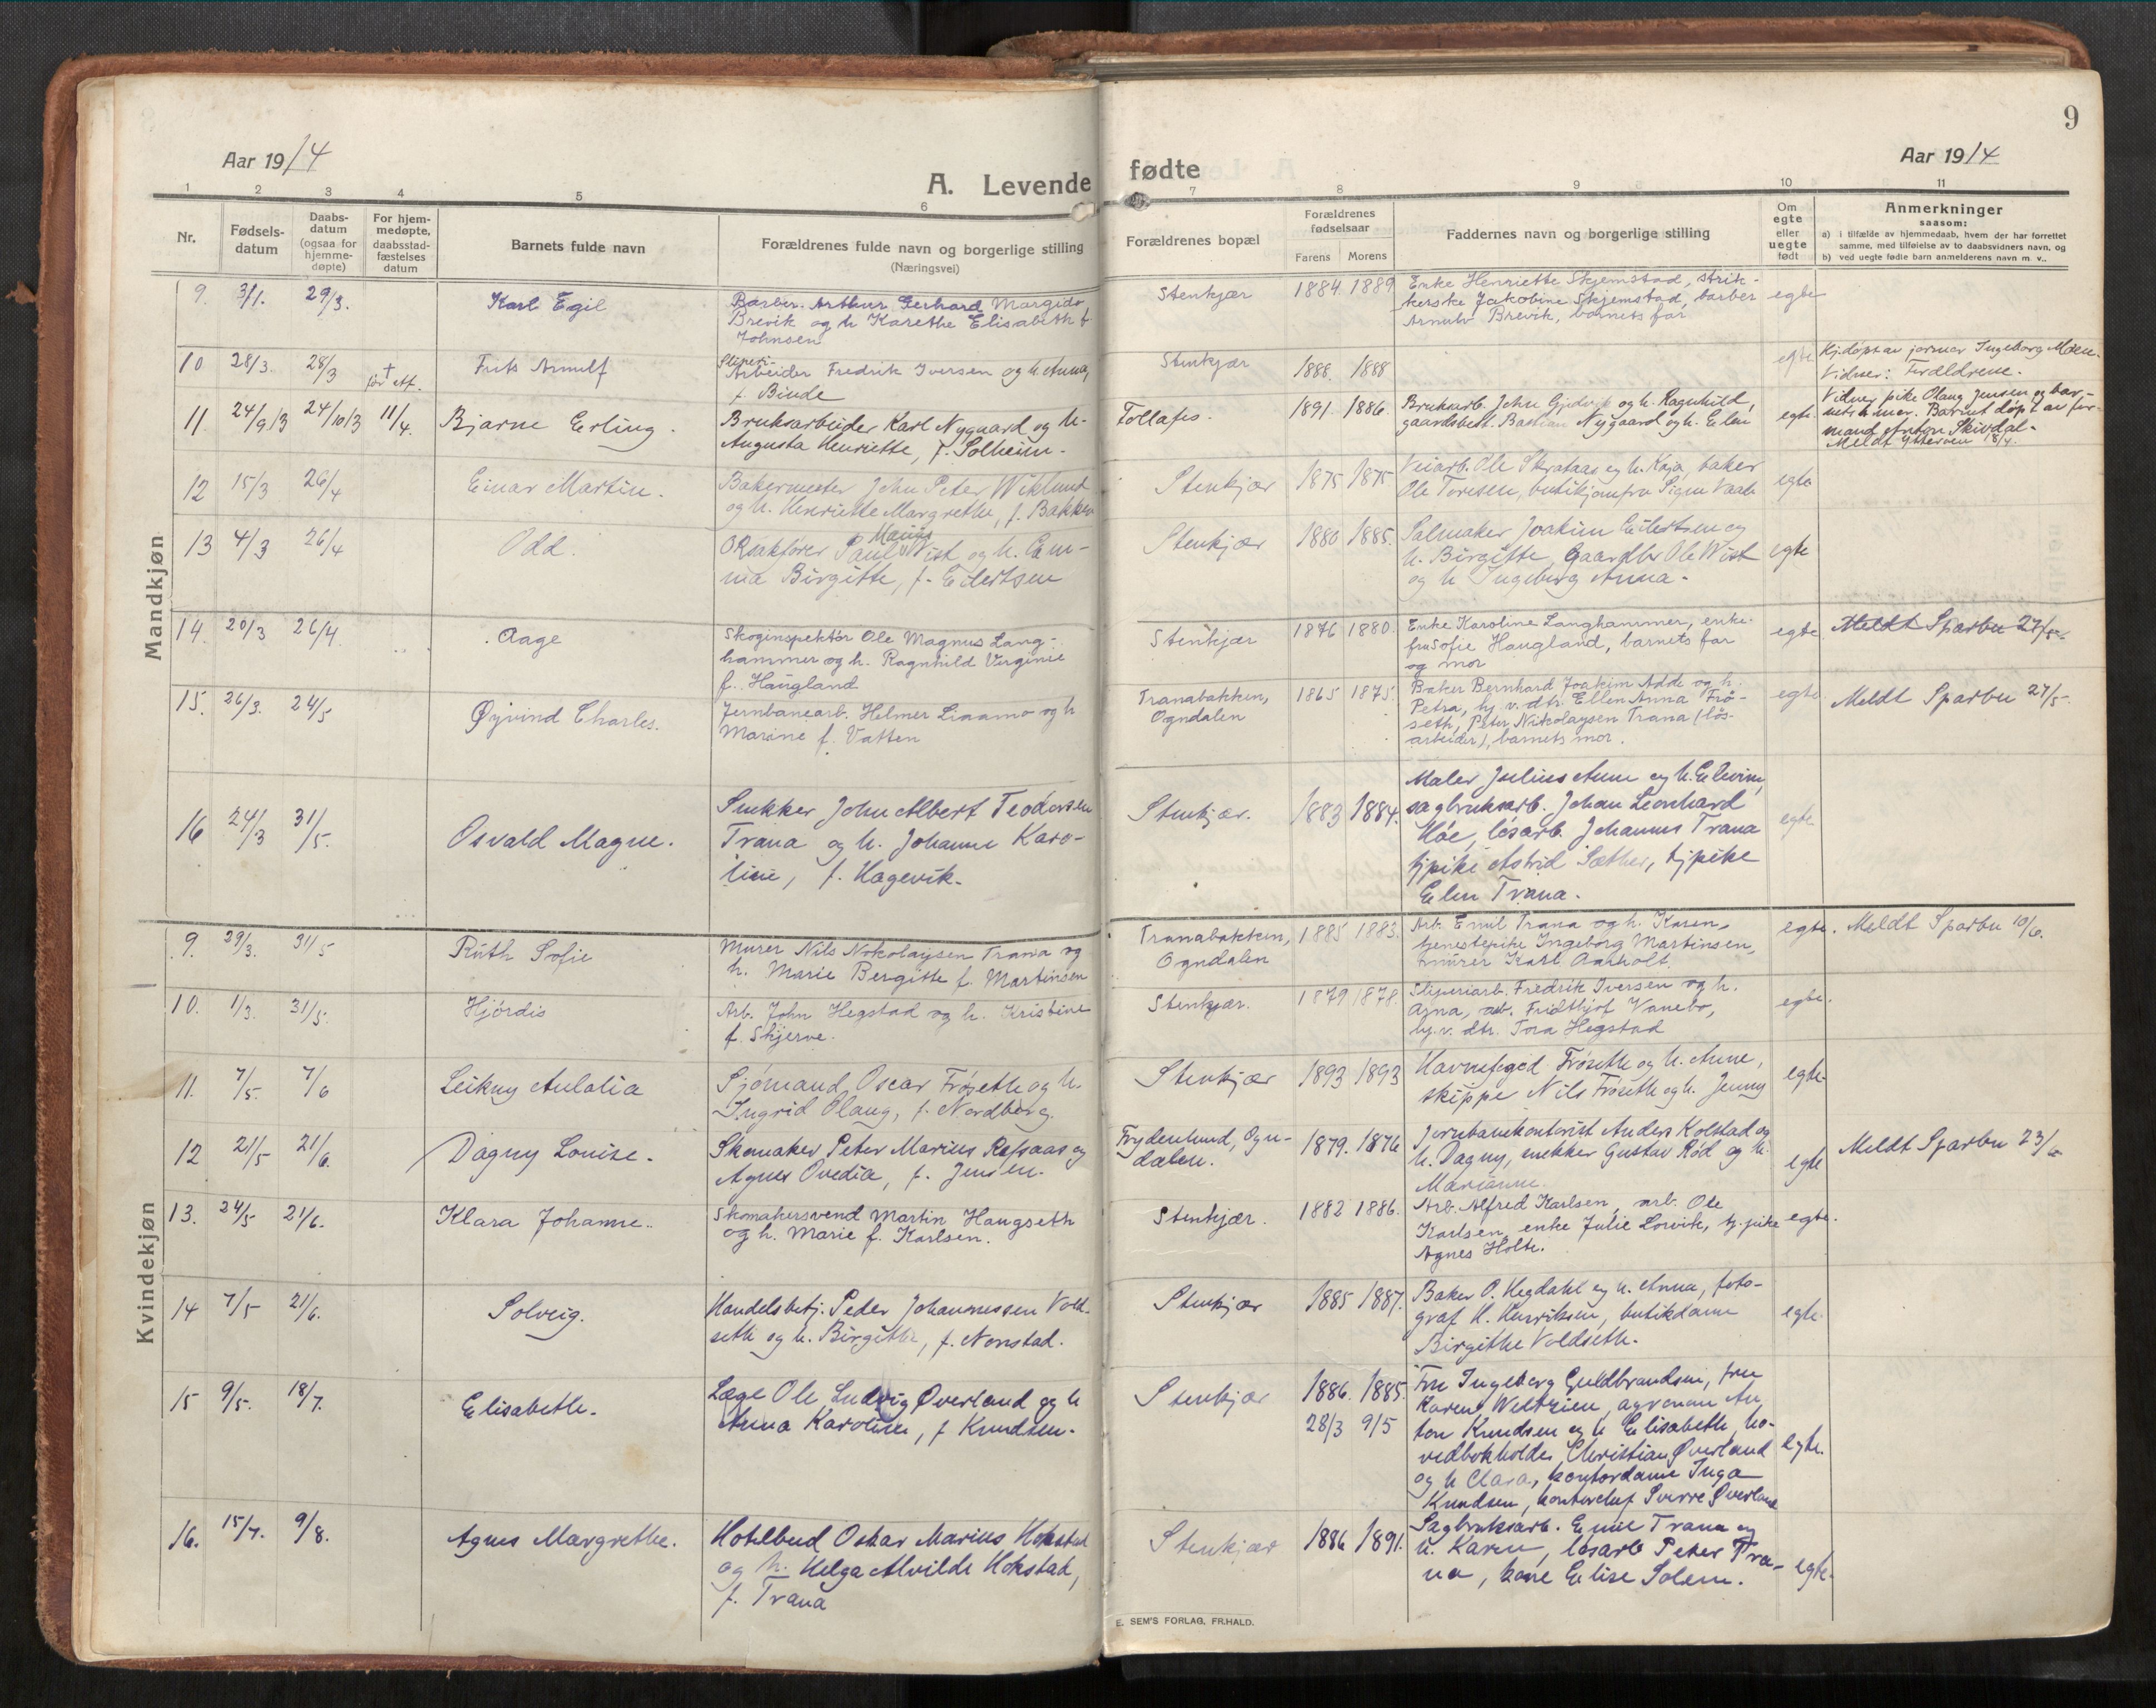 9
Aar 1914
A. Levende
fødte
Aar 1914
1 2 3 4 5 6 7 8 9 10 11
Nr.
Fødsels-
datum
Daabs-
datum
(ogsaa for
hjemme-
døpte)
For hjem-
medøpte,
daabsstad-
fæstelses
datum
Barnets fulde navn
Forældrenes fulde navn og borgerlige stilling
(Næringsvei)
Forældrenes bopæl
Forældrenes
fødselsaar
Farens Morens
Faddernes navn og borgerlige stilling
Om
egte
eller
uegte
født
Anmerkninger
saasom:
a) i tilfælde av hjemmedaab, hvem der har forrettet
samme, med tilføielse av to daabsvidners navn, og
b) ved uegte fødte barn anmelderens navn m. v..
Mandkjøn
9. 3/1. 29/3. Karl Egil
Barber Arthur Gerhard Margido
Brevik og h Karethe Elisabeth f.
Johnsen
Stenkjær 1884 1889
Enke Henriette Skjemstad, strik-
kerske Jakobine Skjemstad, barber
Arnulv Brevik, barnets far
egte
10 28/3. 28/3 † før st f. Frits Arnulf
Sliperi-
Arbeider Fredrik Iversen og h. Anna,
f. Binde
Stenkjær 1888. 1888
egte
Hj.døpt av jormor Ingeborg Moen.
Vidner: Forældrene.
11. 24/9 13 24/10 13 11/4. Bjarne Erling.
Bruksarbeider Karl Nygaard og h.
Augusta Henriette, f. Solheim.
Follafos. 1891. 1886.
Bruksarb. John Gjedvik og h. Ragnhild,
gaardsbest. Bastian Nygaard og h. Elen
egte
Vidner pike Olaug Jensen og bar-
nets h mor. Barnet døpt av for-
mand Anton Skivdal.
Meldt Ytterøen 18/4.
12 15/3 26/4 Einar Martin.
Bakermester John Peter Wiklund
og h. Henriette Margrethe, f. Bakken
Stenkjær 1875 1875
Veiarb. Ole Skrataas og h. Kaja, baker
Ole Toresen, butikjomfru Signe Vaale
egte
13 4/3 26/4 Odd.
Marius
O.Rsakfører Paul Wist og h. Em-
ma Birgitte, f. Eilertsen
Stenkjær 1880 1885.
Salmaker Joakim Eilertsen og
h. Birgitte, Gaardbr Ole Wist
og h Ingeborg Anna.
egte
14. 20/3 26/4. Aage
Skoginspektør Ole Magnus Lang-
hammer og h. Ragnhild Virginie
f. Haugland
Stenkjær 1876 1880.
Enke Karoline Langhammer, enke-
fru Sofie Haugland, barnets far
og mor
egte
Meldt Sparbu 27/5.
15. 26/3. 24/5 Øyvind Charles.
Jernbanearb. Helmer Linamo og h
Marine f. Vatten
Tranabakken,
Ogndalen
1865 1875.
Baker Bernhard Joakim Adde og h.
Petra, hj. v. dtr. Ellen Anna Frø-
seth, Peter Nikolaysen Trana (løs-
arbeider), barnets mor.
egte
Meldt Sparbu 27/5.
16 24/3 31/5. Osvald Magne.
Snekker John Albert Teodorsen
Trana og h. Johanne Karo-
line, f. Hagevik.
Stenkjær. 1883 1884.
Maler Julius Aune og h. Elevine,
sagbruksarb. Johan Leonhard
Høe, løsarb. Johannes Trana
tjpike Astrid Sæther, tjpike
Elen Trana.
egte
Kvindekjøn
9. 29/3. 31/5 Ruth Sofie
Murer Nils Nikolaysen Trana og
h. Marie Bergitte f. Martinsen
Tranabakken,
Ogndalen
1885 1883.
Arb. Emil Trana og h. Karen,
tjenestepike Ingeborg Martinsen,
murer Karl Aaholt.
egte.
Meldt Sparbu 10/6.
10. 1/3. 31/5. Hjørdis
Arb. John Hegstad og h. Kristine
f. Skjerve.
Stenkjær. 1879 1878.
Sliperiarb. Fredrik Iversen og h.
Anna, arb. Fridthjof Vanebo,
hj. v. dtr. Tora Hegstad
egte.
11. 7/5. 7/6 Leikny Aulalia
Sjømand Oscar Frøseth og h.
Ingrid Olaug, f. Nordberg.
Stenkjær 1893 1893
Havnefoged Frøseth og h. Anne,
skipper Nils Frøseth og h. Jenny
egte.
12 21/5 21/6. Dagny Louise.
Skomaker Peter Marius Refsaas og
Agnes Ovedia, f. Jensen.
Frydenlund, Ogn-
dalen.
1879. 1876
Jernbanekontorist Anders Kolstad og
h. Dagny, snekker Gustav Rød og h.
Marianne.
egte
Meldt Sparbu 23/6
13. 24/5 21/6. Klara Johanne.
Skomakersvend Martin Haugseth
og h. Marie f. Karlsen.
Stenkjær. 1882 1886.
Arb. Alfred Karlsen, arb. Ole
Karlsen, enke Julie Lorvik, tj. pike
Agnes Holte.
egte.
14 7/5 21/6. Solveig.
Handelsbetj. Peder Johannessen Vold-
seth og h. Birgitte, f. Nonstad.
Stenkjær 1885 1887.
Baker O. Hegdahl og h. Anna, foto-
graf H. Henriksen, butikdame
Birgithe Voldseth.
egte.
15 9/5. 18/7. Elisabeth.
Læge Ole Ludvig Øverland og h
Anna Karoline, f Knudsen.
Stenkjær 1886. 1885.
28/3 9/5
Fru Ingeborg Guldbrandsen, fru
Karen , agronom An
ton Knudsen og h Elisabeth, ho-
vedbokholder Christian Øverland
og h Clara, kontordame Inga
Knudsen, kontorchef Sverre Øverland
egte.
16. 15/7. 9/8. Agnes Margrethe.
Hotelbud Oskar Marius Hokstad
og h. Helga Alvilde Hokstad,
f. Trana
Stenkjær 1886 1891.
Sagbruksarb. Emil Trana og
h. Karen, løsarb Peter Tra-
na, kone Elise Solem.
egte.
E. SEM'S FORLAG, FR.HALD.